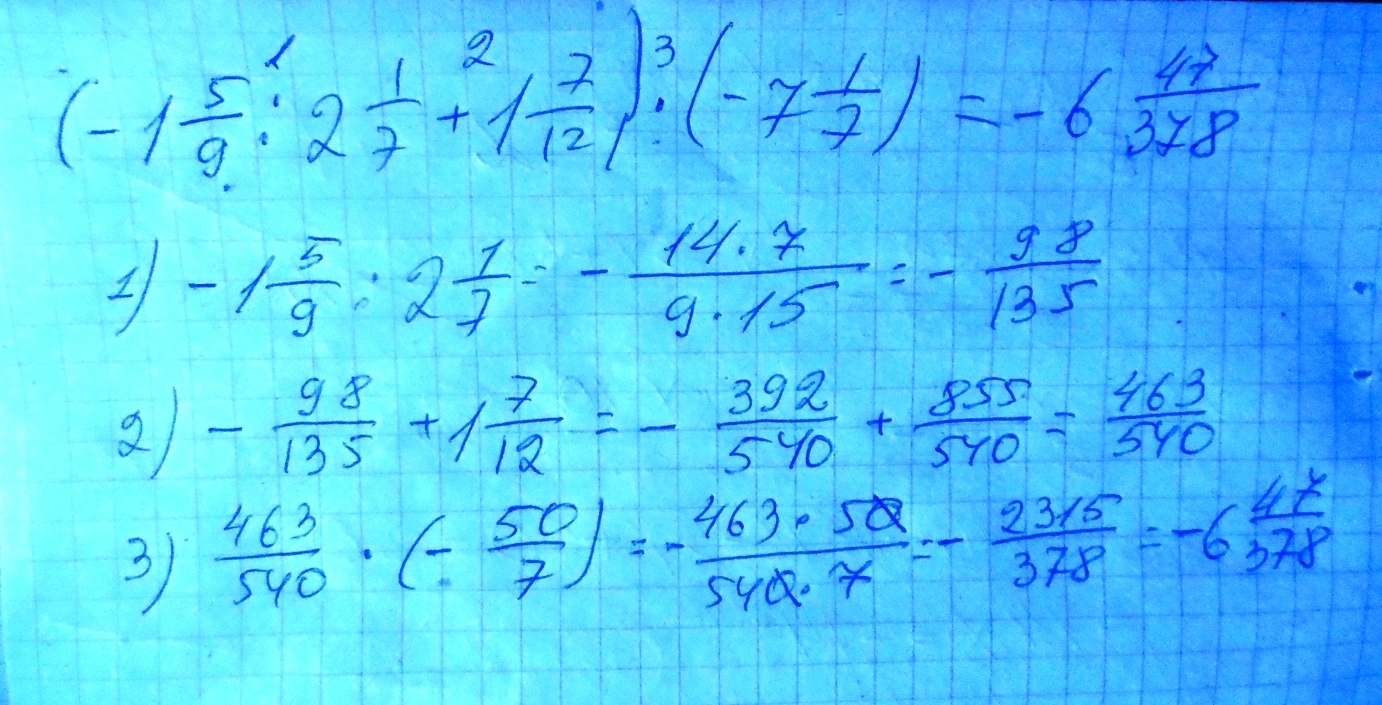 (-1 5/9 : 2 1/7 + 1 7/12) · (-7 1/7) = -6 47/378
1) -1 5/9 : 2 1/7 = - 14·7/9·15 = - 98/135
2) - 98/135 + 1 7/12 = - 392/540 + 855/540 = 463/540
3) 463/540 · (- 50/7) = - 463·50/540·7 = - 2315/378 = -6 47/378